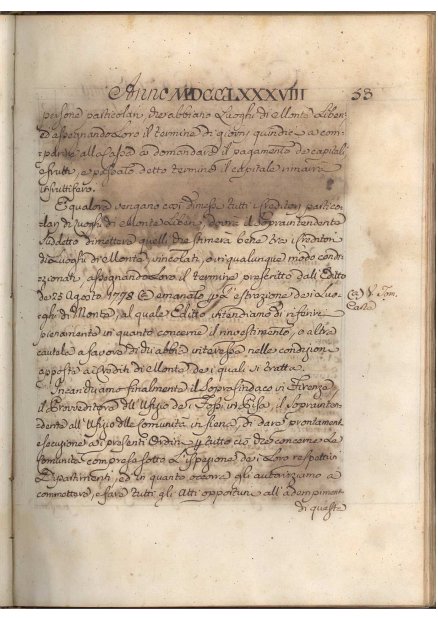 Anno MDCCLXXXVIII 53
persone particolari, che abbiano Luoghi di Monte Liberi
assegnando Loro il termine di giorni quindici a com=
parire alla Cassa a domandare il pagamento de capitali
e frutti, e passato detto termine il Capitale rimarrà
infruttifero.
E qualora vengano così dimessi tutti i Creditori partico=
lari di Luoghi di Monte Liberi, dovrà il Sopraintendente
suddetto dimettere quelli che stimerà bene tra i Creditori
di Luoghi di Monte vincolati, o in qualunque modo condi=
zionati, assegnando Loro il termine prescritto dall'Editto
de 25 Agosto 1778 (a) emanato p l'estrazione de i Luo=
ghi di Monte, al quale Editto intendiamo di riferirci
pienamente in quanto concerne il rinvestimento, o altra
cautela a favore di chi abbia interesse nelle condizioni
apposte ai Crediti di Monte de i quali si tratta.
Incarichiamo finalmente il Soprassindaco in Firenze
il Provveditore dell'Ufizio de i Fossi in Pisa, il Soprainten=
dente all'Ufizio delle Comunità in Siena, di dare prontamente
esecuzione ai presenti Ordini p tutto ciò che concerne Le
Comunità comprese sotto L'ispezione de i Loro respettivi
Dipartimenti, ed in quanto occorra gli autorizziamo a
commettere, e fare tutti gli Atti opportuni all'adempimento
di queste
(a) V. Tom.
Carte